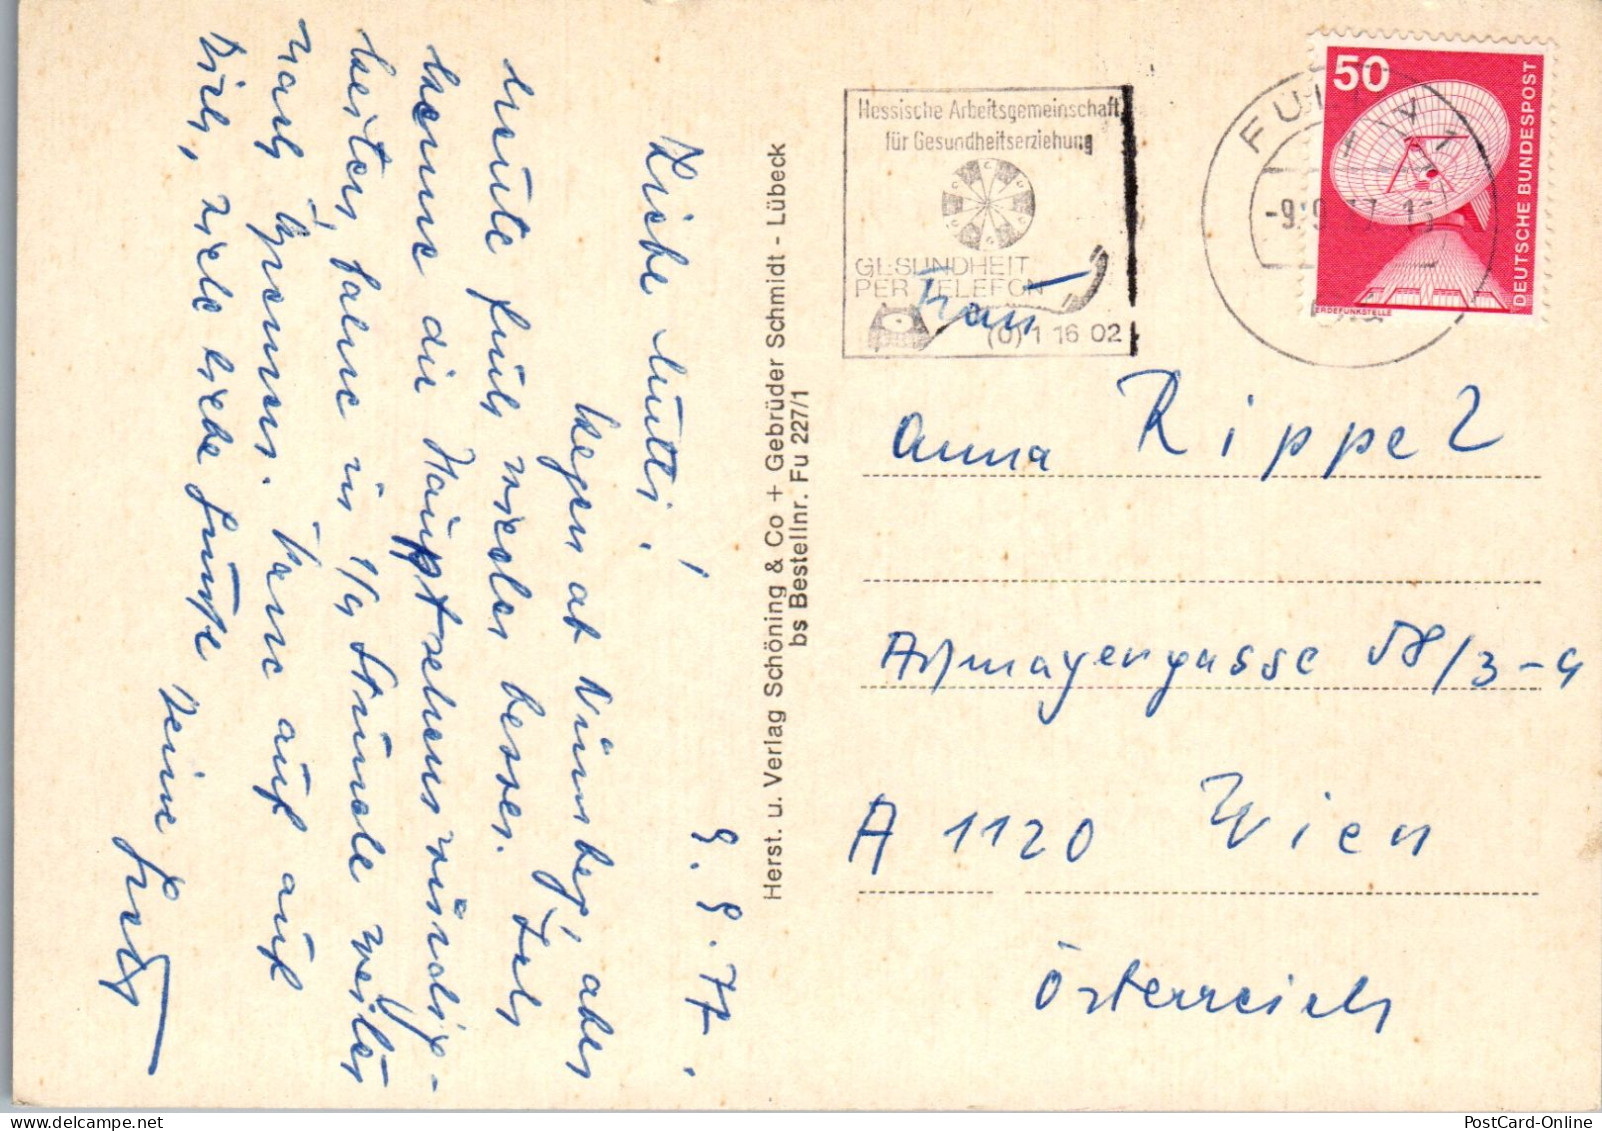 Liebe Mutti!
9.9.77.
Regen ab Nürnberg, aber
heute früh wieder besser. Ich
kenne die Hauptsehenswürdig-
keiten, fahre in 1/4 Stunde weiter
nach Bremen. Freue auf auf
Dich, viele liebe Grüße Deine
Herst. u. Verlag Schöning & Co + Gebrüder Schmidt - Lübeck
bs Bestellnr. Fu 227/1
Hessische Arbeitsgemeinschaft
für Gesundheitserziehung
GESUNDHEIT
PER TELEFON
(0) 1 16 02
FULDA 1
-9.9.77.15
50
DEUTSCHE BUNDESPOST
ERDEFUNKSTELLE
Frau
Anna Rippel
Aßmayergasse 58/3-4
A 1120 Wien
Österreich
PostCard-Online